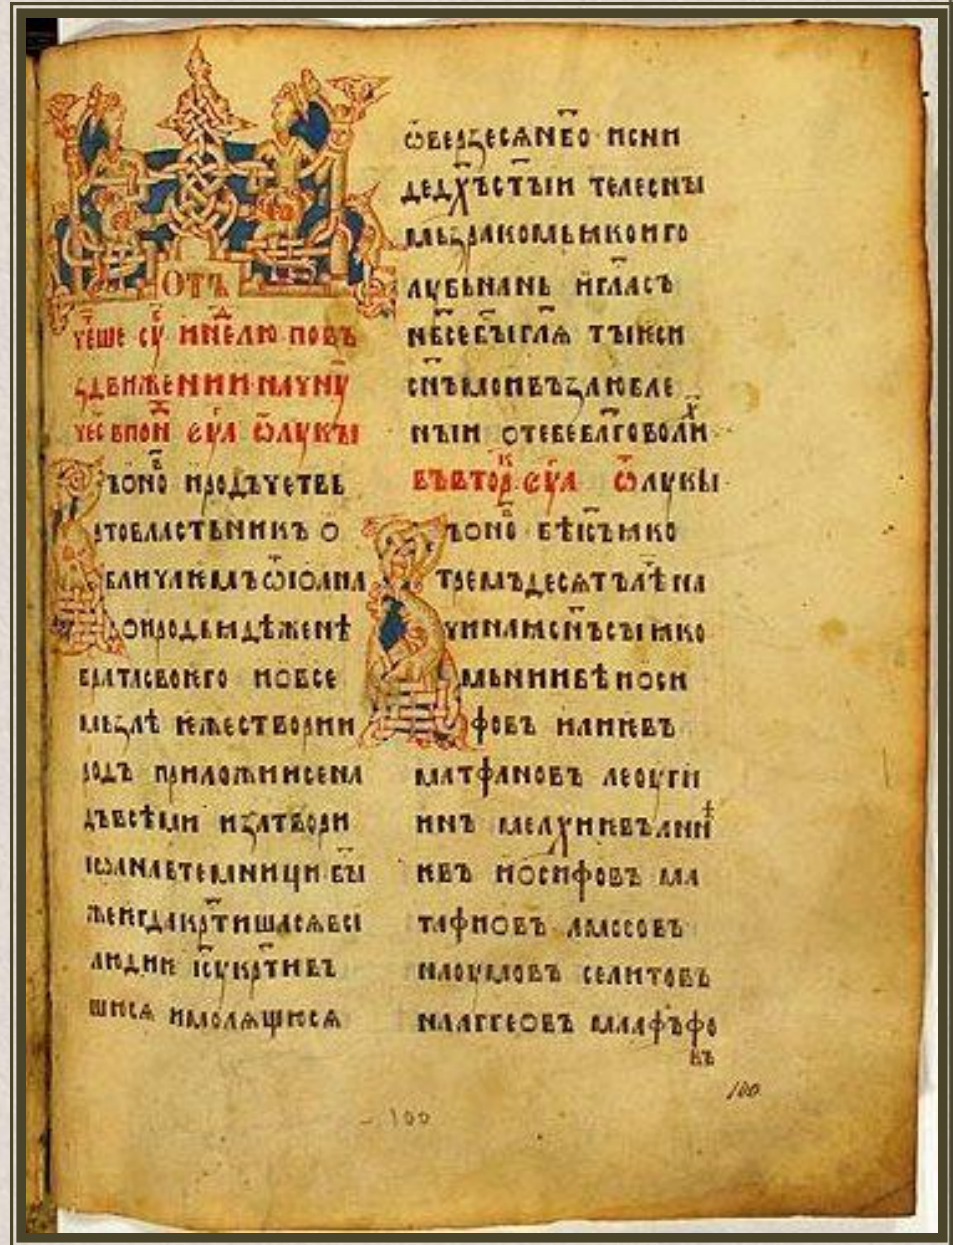 ОТЪ
ЧЕШЕ СЧ҃ И НЕ҃ЛЮ ПОВЪ
ꙀДВИЖЕНИИ НАЧНЧ
ЧЕС ВПОН҃ ЕѴ҃А Ѿ ЛꙊКЫ
ЪОНО҃ ИРОДЪ ЧЕТВЬ
РТОВЛАСТЬНИКЪ О
БЛИЧАЕМЪ Ѿ ІѠАНА
О ИРОДЬꙖДѢ ЖЕНѢ
БРАТА СВОѤГО И О ВСЕ
МЬ ꙀЛѢ ѤЖЕ СТВОРИ И
РОДЪ ПРИЛОЖИ И СЕ НА
ДЪ ВСѢМИ И ꙀАТВОРИ
ІѠАНА В ТЕМНИЦИ БЫ
ЖЕ ѤГДА КР҃ТИША СѦ ВСІ
ЛЮДИѤ ІС҃Ꙋ КР҃ТИВЪ
ШЮСѦ И МОЛѦЩЮСѦ
ѾВЕРꙀЕ СѦ НБ҃О И СНИ
ДЕ ДХ҃Ъ СТ҃ЫИ ТЕЛЕСНЫ
МЬ ꙀРАКОМЬ ꙖКО И ГО
ЛꙊБЬ НА НЬ И ГЛАСЪ
НБ҃СЕ БЫ ГЛ҃Ѧ ТЫ ѤСИ
СН҃Ъ МОИ ВЪꙀЛЮБЛЕ
НЫИ О ТЕБЕ БЛ҃ГОВОЛИХ
ВЪ ВТОР҃К ЕѴ҃А Ѿ ЛꙊКЫ
ЪОНО҃ БѢ ІС҃Ъ ꙖКО
ТРЕМЪДЕСѦТЪ ЛѢ҃ НА
ЧИНАꙖ СН҃Ъ СЫ ꙖКО
МЬНИИ БѢ ИОСИ
ФОВЪ ИЛИѤВЪ
МАТФАНОВЪ ЛЕОꙊГИ
ИНЪ МЕЛХИИѤВЪ АНИ
ѤВЪ ИОСИФОВЪ МА
ТАФИОВЪ АМОСОВЪ
НАОꙊМОВЪ СЕЛИТОВЪ
НААГГЕОВЪ МААФЪФО
ВЪ
100
100